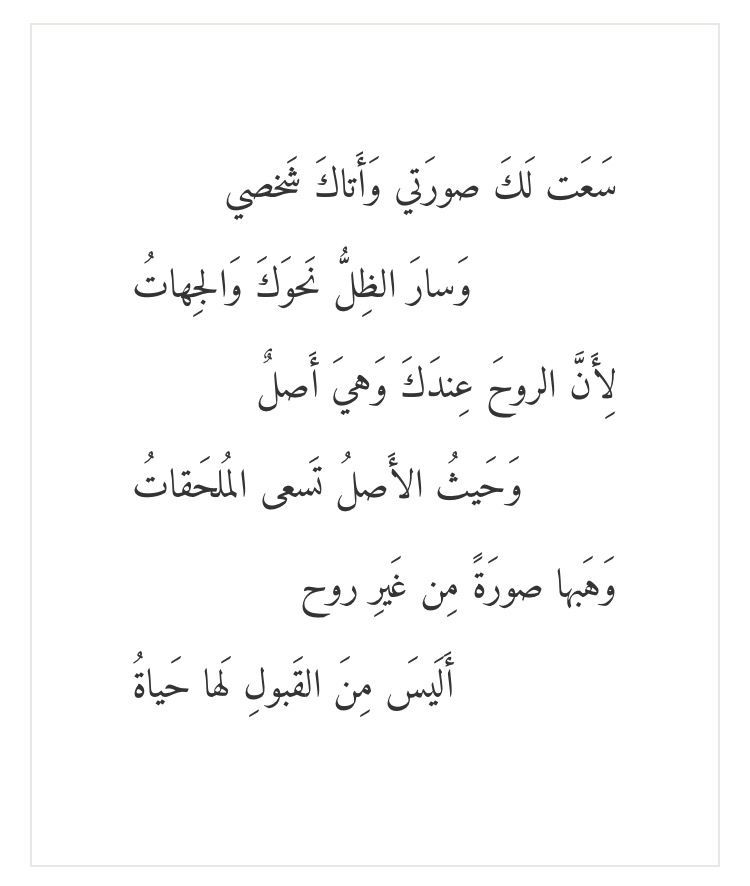 سَعَت لَكَ صورَتي وَأَتاكَ شَخصي
وَسارَ الظِلُّ نَحوَكَ وَالجِهاتُ
لِأَنَّ الروحَ عِندَكَ وَهيَ أَصلٌ
وَحَيثُ الأَصلُ تَسعى المُلحَقاتُ
وَهَبها صورَةً مِن غَيرِ روح
أَلَيسَ مِنَ القَبولِ لَها حَياةُ